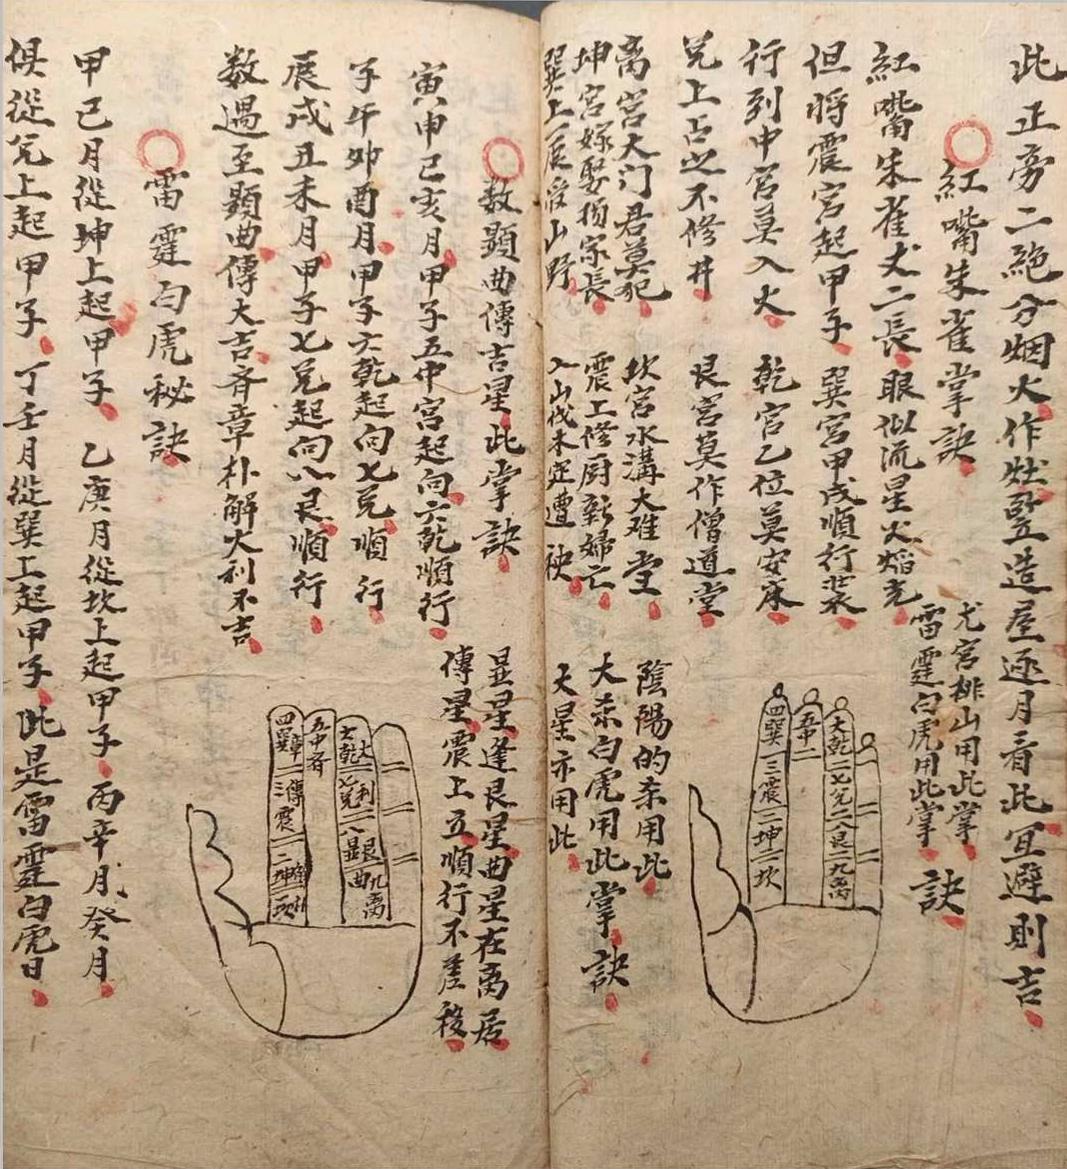 此正旁二絕分烟火作灶竪造屋逐月看此宜避則吉
紅嘴朱雀掌訣
尤宮排山用此掌
雷霆白虎用此掌 訣
紅嘴朱雀丈二長眼似流星火焰光
但將震宮起甲子 巽宮甲戌順行裝
行到中宮莫入火 乾宮乙位莫安床
兌上占之不修井 艮宮莫作僧道堂
离宮大门君莫犯 坎宮水溝大难堂
坤宮嫁娶損家長 震上修厨新婦亡
巽上 山野 入山伐木定遭殃
陰陽的杀用此
大杀白虎用此掌訣
大星亦用此
四巽
三震
二坤
一坎
五中
六乾
七兌
八艮
九离
数顕曲傳吉星此掌訣
寅申巳亥月甲子五中宮起向六乾順行
子午卯酉月甲子六乾起向七兌順行
辰戌丑未月甲子七兌起向八艮順行
数過至顕曲傳大吉斉章朴解大利不吉
显星逢艮星曲星在离居
傳星震上立順行不差移
四巽章
三傳震
二坤
五中斉
六乾
七兌利
八艮顕
九离曲
雷霆白虎秘訣
甲己月從坤上起甲子 乙庚月從坎上起甲子 丙辛月癸月
俱從兌上起甲子 丁壬月從巽上起甲子 此是雷霆白虎日